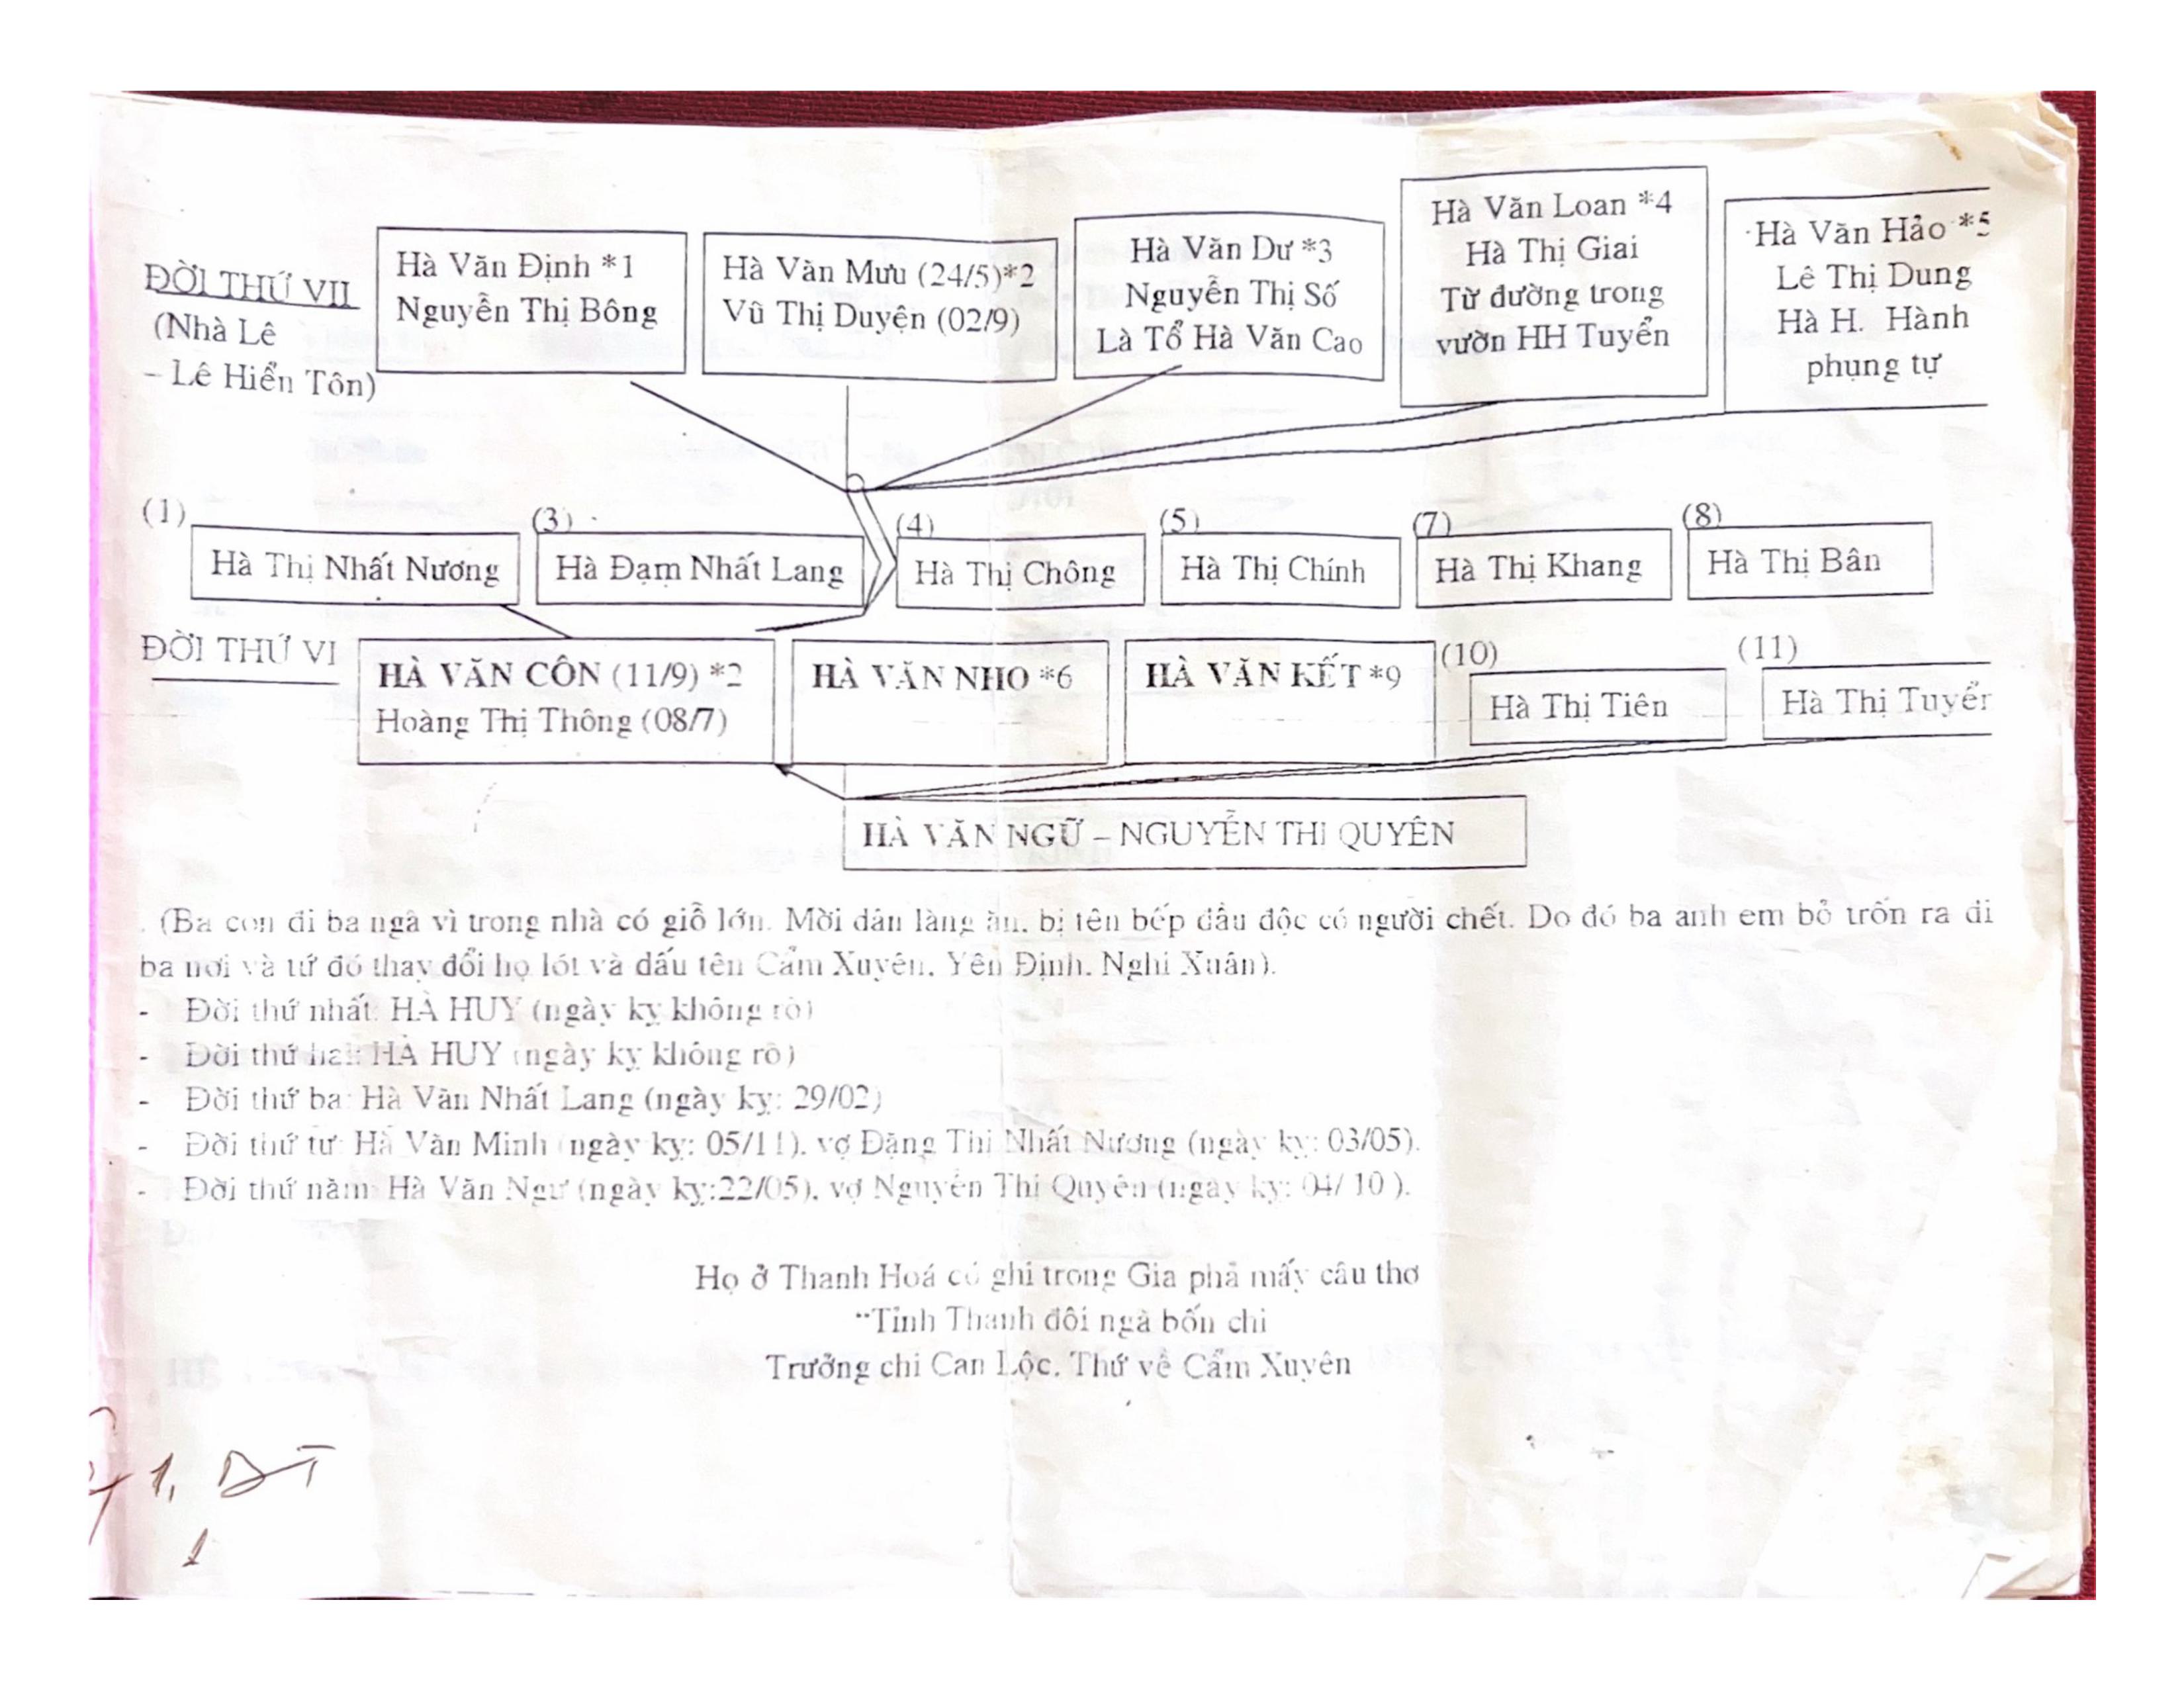 ĐỜI THỨ VII
(Nhà Lê
– Lê Hiển Tôn)
Hà Văn Định *1
Nguyễn Thị Bông
Hà Văn Mưu (24/5)*2
Vũ Thị Duyện (02/9)
Hà Văn Dư *3
Nguyễn Thị Số
Là Tổ Hà Văn Cao
Hà Văn Loan *4
Hà Thị Giai
Từ đường trong
vườn HH Tuyển
Hà Văn Hảo *5
Lê Thị Dung
Hà H. Hành
phụng tự
(1)
Hà Thị Nhất Nương
(3)
Hà Đạm Nhất Lang
(4)
Hà Thị Chông
(5)
Hà Thị Chính
(7)
Hà Thị Khang
(8)
Hà Thị Bân
ĐỜI THỨ VI
HÀ VĂN CÔN (11/9) *2
Hoàng Thị Thông (08/7)
HÀ VĂN NHO *6
HÀ VĂN KẾT *9
(10)
Hà Thị Tiên
(11)
Hà Thị Tuyển
HÀ VĂN NGỮ – NGUYỄN THỊ QUYÊN
. (Ba con đi ba ngả vì trong nhà có giỗ lớn. Mời dân làng ăn, bị tên bếp đầu độc có người chết. Do đó ba anh em bỏ trốn ra đi
ba nơi và từ đó thay đổi họ lót và dấu tên Cẩm Xuyên, Yên Định, Nghi Xuân).
- Đời thứ nhất: HÀ HUY (ngày kỵ không rõ)
- Đời thứ hai: HÀ HUY (ngày kỵ không rõ)
- Đời thứ ba: Hà Văn Nhất Lang (ngày kỵ: 29/02)
- Đời thứ tư: Hà Văn Minh (ngày kỵ: 05/11), vợ Đặng Thị Nhất Nương (ngày kỵ: 03/05).
- Đời thứ năm: Hà Văn Ngư (ngày kỵ:22/05), vợ Nguyễn Thị Quyên (ngày kỵ: 04/ 10 ).
Họ ở Thanh Hoá có ghi trong Gia phả mấy câu thơ
"Tỉnh Thanh đôi ngả bốn chi
Trưởng chi Can Lộc, Thứ về Cẩm Xuyên